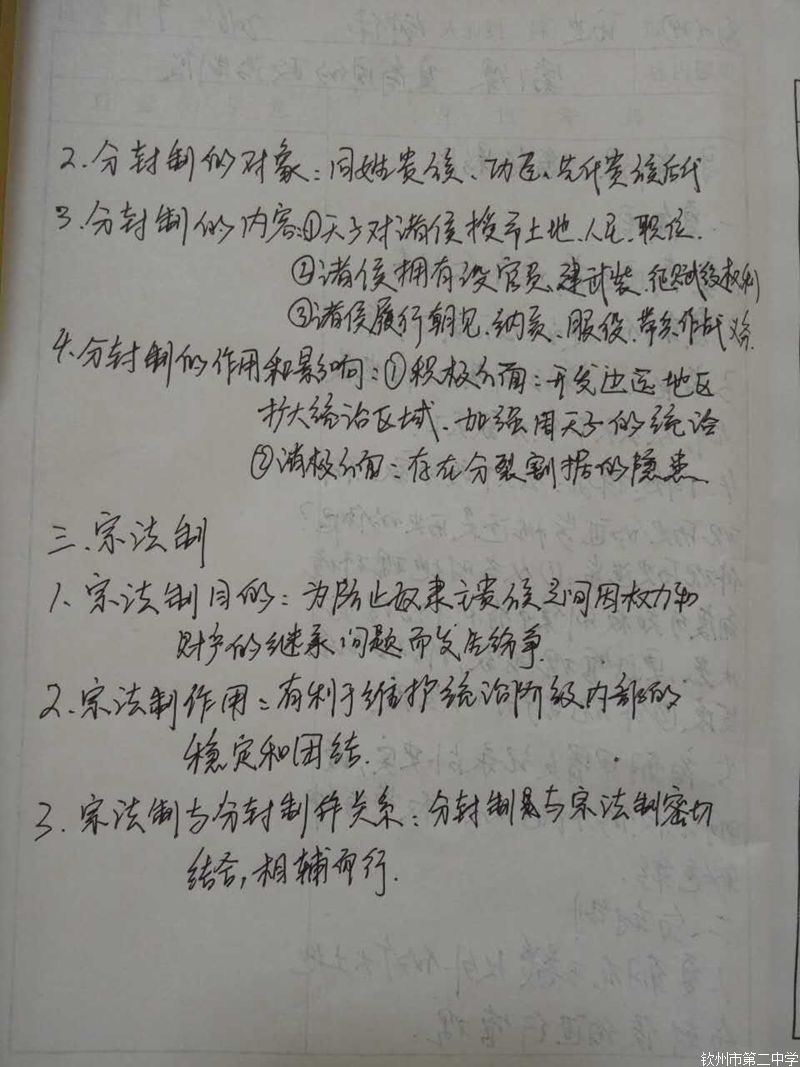 2.分封制的对象:同姓贵族、功臣、先代贵族后代
3.分封制的内容:①天子对诸侯授予土地、人民、职位.
②诸侯拥有设官员、建武装、征赋役权利
③诸侯履行朝见、纳贡、服役、带兵作战义务.
4.分封制的作用和影响:①积极方面:开发边远地区
扩大统治区域、加强周天子的统治
②消极方面:存在分裂割据的隐患.
三.宗法制
1.宗法制目的:为防止奴隶主贵族之间因权力和
财产的继承问题而发生纷争.
2.宗法制作用:有利于维护统治阶级内部的
稳定和团结.
3.宗法制与分封制关系:分封制是与宗法制密切
结合,相辅而行.
钦州市第二中学